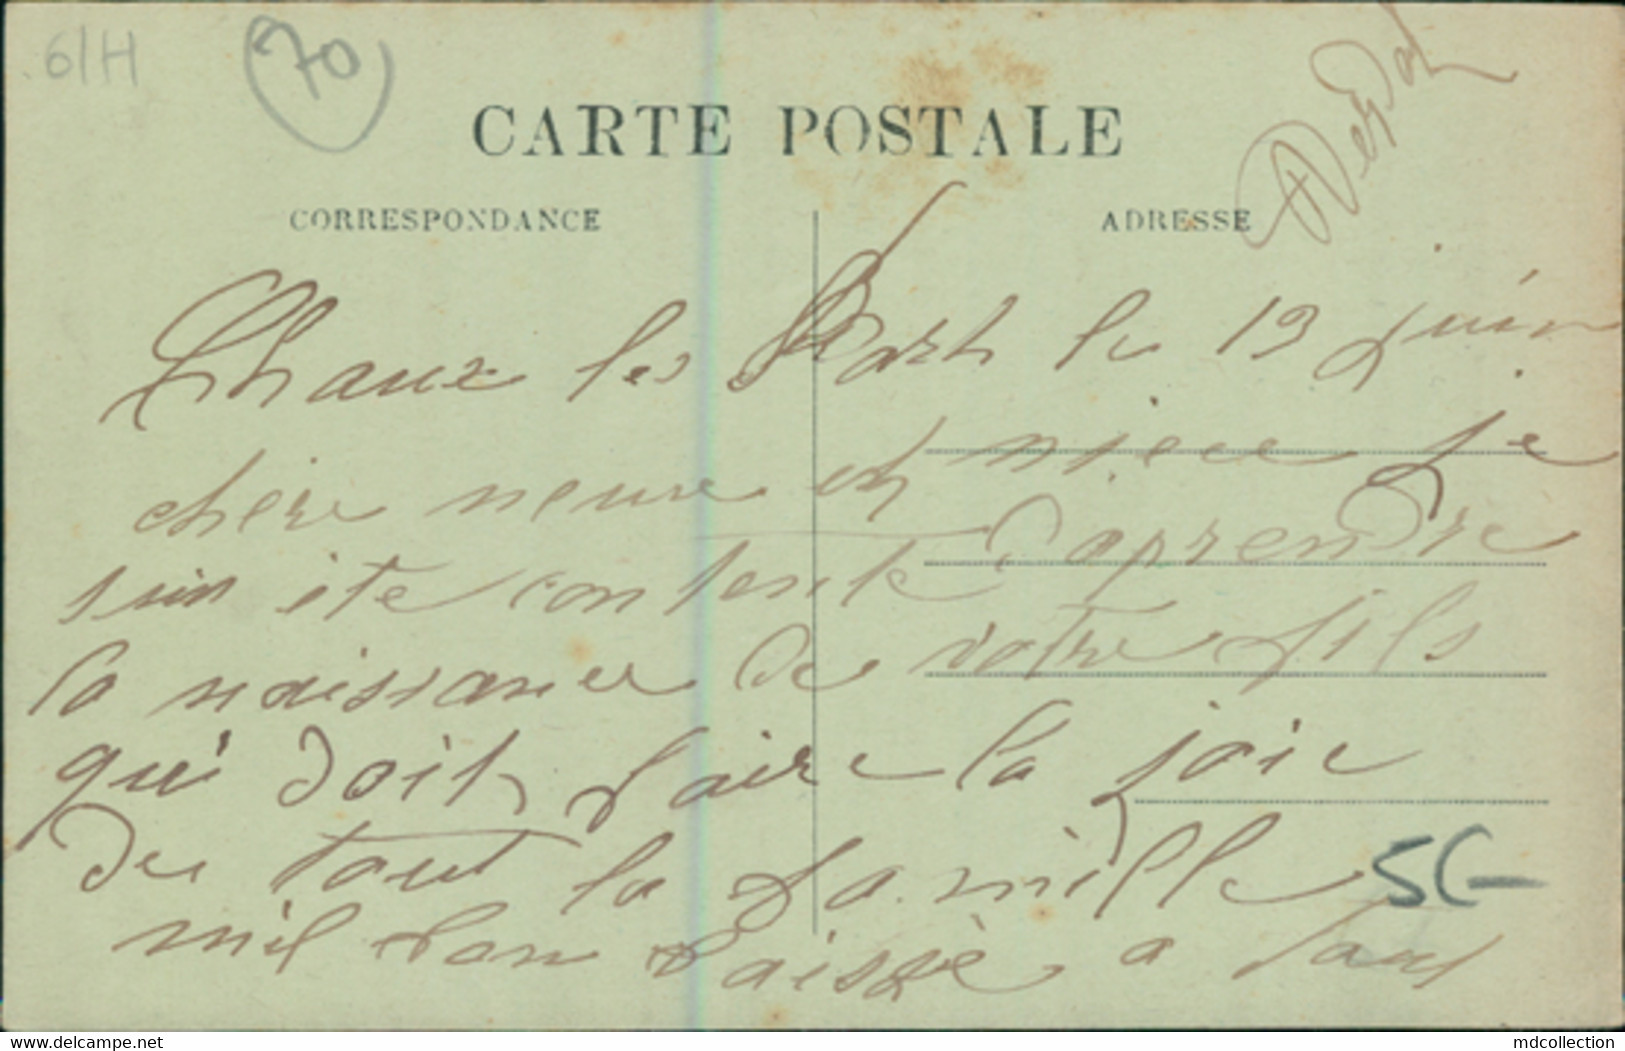 6/H
70
CARTE POSTALE
CORRESPONDANCE
ADRESSE
Chaux les Port le 19 juin
chère neveu et niece je
suis ete contente d'aprendre
la naissance de votre fils
qui doit faire la joie
de tout la famille
mil bon baissè a tous
5€
www.delcampe.net
mdcollection